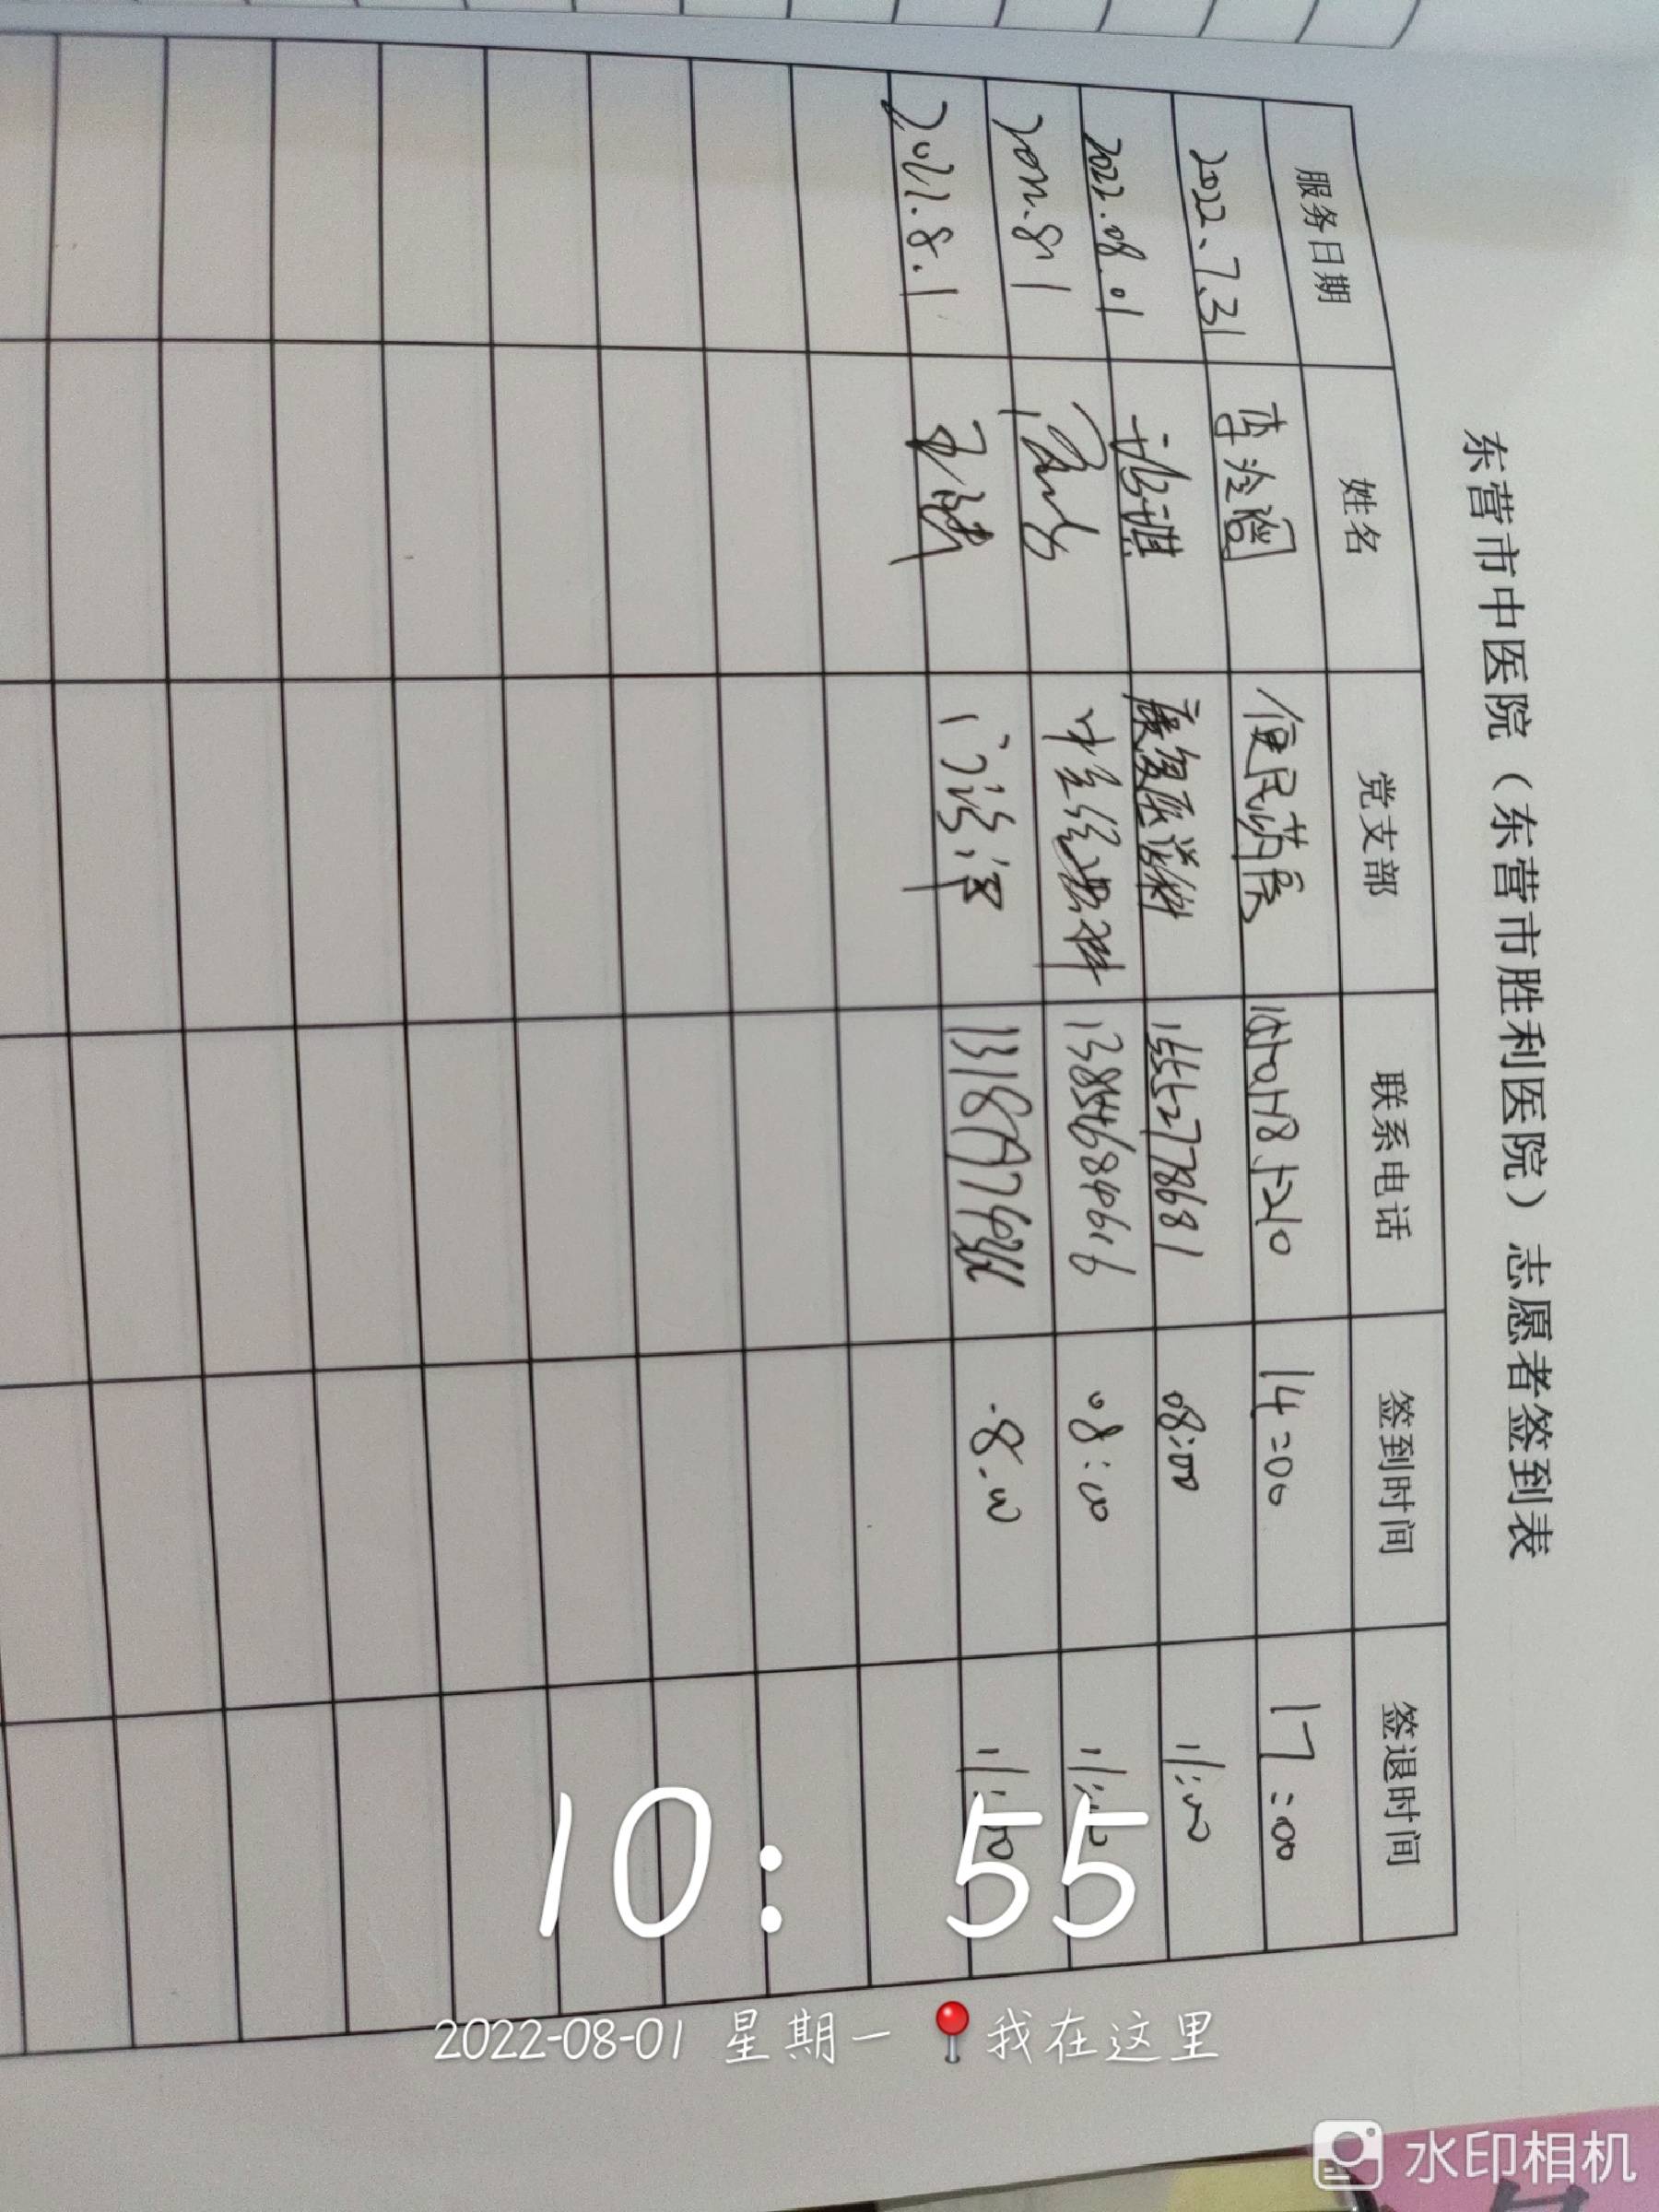 东营市中医院（东营市胜利医院）志愿者签到表
服务日期 姓名 党支部 联系电话 签到时间 签退时间
2022.7.31 李 便民药房 14:00 17:00
2022.08.01 康复医学科 15552778681 08:00 11:00
8.1 科 13854684616 08:00 11:00
8.1 王 门诊 8.00 11:00
10:55
2022-08-01 星期一 📍我在这里
水印相机